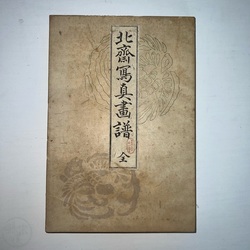 北齋寫真畫譜 全